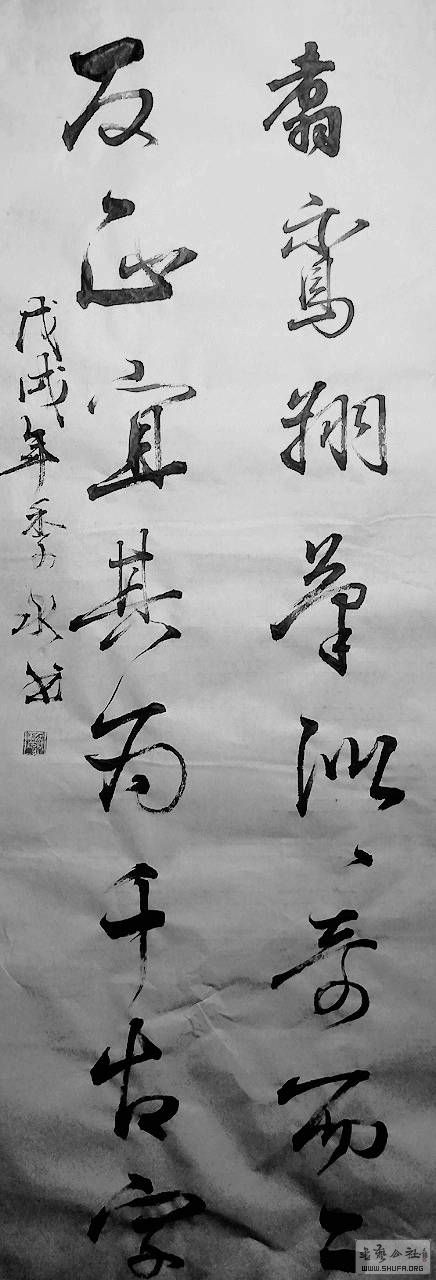 翥鸾翔奇而
反正宜其为千古字
戊戌年季
书艺公社
WWW.SHUFA.ORG